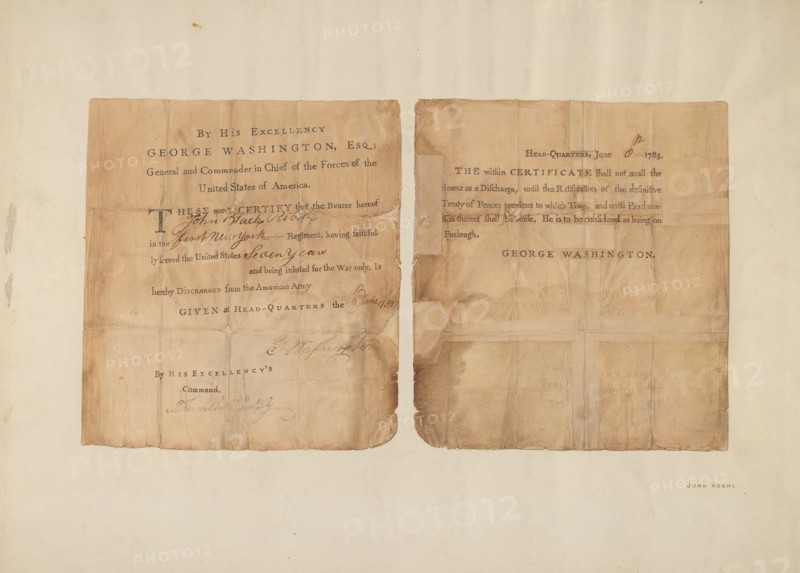 By His Excellency
GEORGE WASHINGTON, Esq;
General and Commander in Chief of the Forces of the
United States of America.
THESE are to CERTIFY that the Bearer hereof
John
in the First New York Regiment, having faithful-
ly served the United States Seven Years
and being inlisted for the War only, is
hereby Discharged from the American Army
GIVEN at Head-Quarters the 8
G Washington
By His Excellency's
Command,
Head-Quarters, June 8th 1783.
THE within CERTIFICATE shall not avail the
Bearer as a Discharge, until the Ratification of the definitive
Treaty of Peace; previous to which Time, and until Proclama-
tion thereof shall be made, He is to be considered as being on
Furlough.
GEORGE WASHINGTON.
JOHN KOEHL
PHOTO12